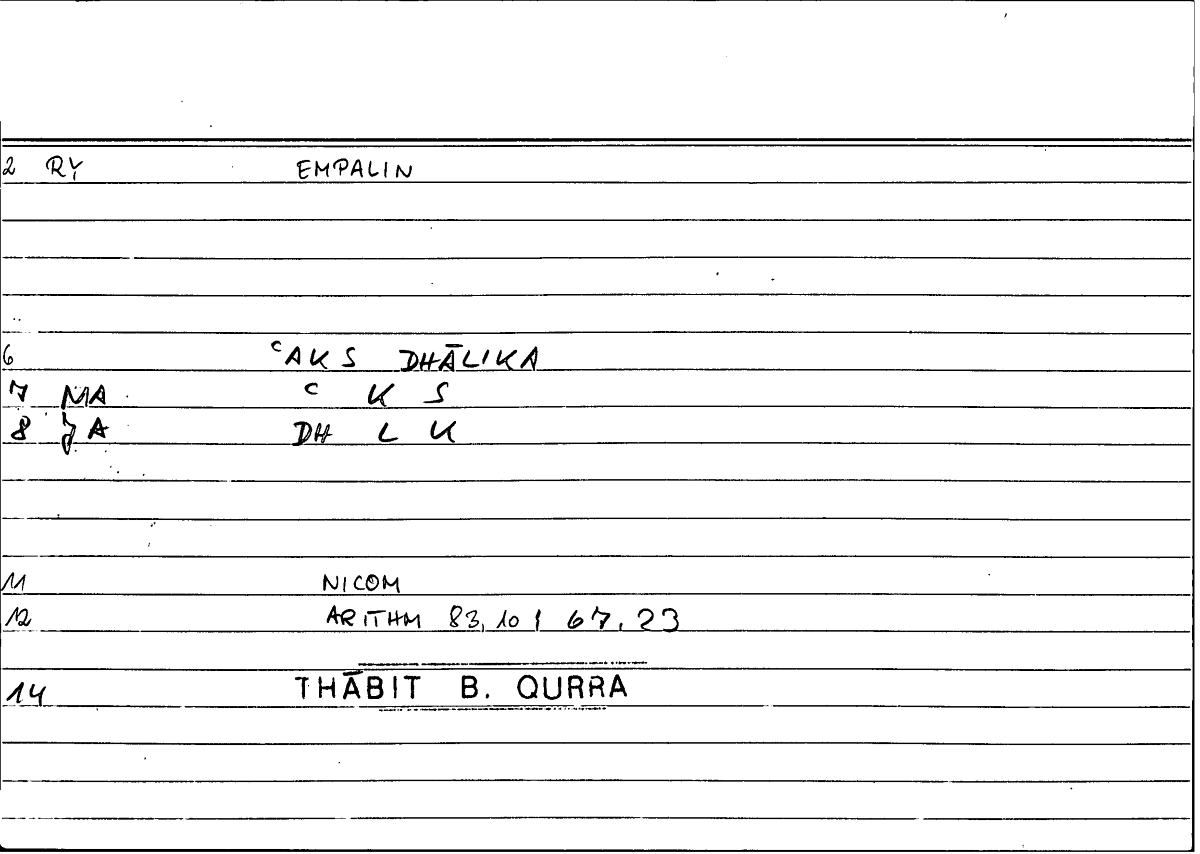 2 RY EMPALIN
6 ᶜAKS DHĀLIKA
7 MA ᶜ K S
8 JA DH L K
11 NICOM
12 ARITHM 83,10 | 67,23
14 THĀBIT B. QURRA